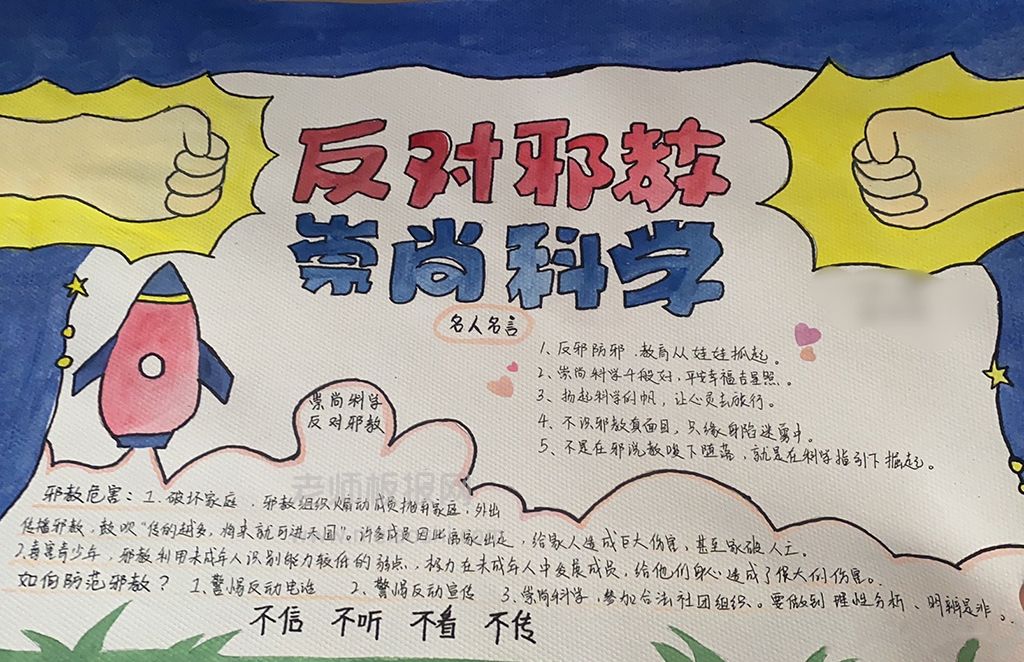 反对邪教
崇尚科学
名人名言
1、反邪防邪,教育从娃娃抓起。
2、崇尚科学千般对,平安幸福吉星照。
3、扬起科学的帆,让心灵去旅行。
4、不识邪教真面目,只缘身陷迷雾中。
5、不是在邪说教唆下堕落,就是在科学指引下掘起。
崇尚科学
反对邪教
老师板报网
邪教危害:1、破坏家庭,邪教组织煽动成员抛弃家庭,外出
传播邪教,鼓吹“传的越多,将来就可进天国”。许多成员因此离家出走,给家人造成巨大伤害,甚至家破人亡。
2、毒害青少年,邪教利用未成年人识别能力较低的弱点,极力在未成年人中发展成员,给他们身心造成了很大的伤害。
如何防范邪教? 1、警惕反动电话 2、警惕反动宣传 3、崇尚科学,参加合法社团组织。要做到理性分析、明辨是非。
不信 不听 不看 不传